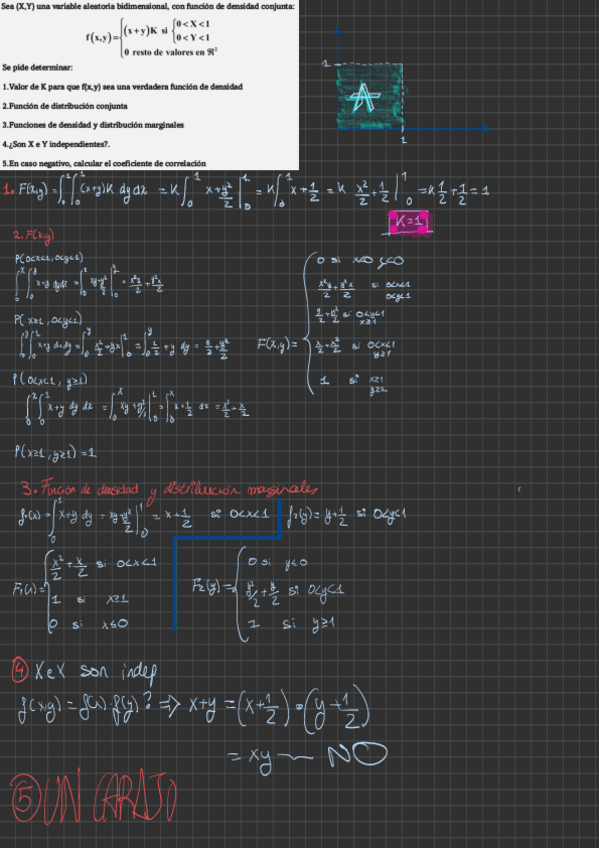 Sea (X,Y) una variable aleatoria bidimensional, con función de densidad conjunta:
f(x,y)={(x+y)K si {0<X<1
0<Y<1
0 resto de valores en ℜ²
Se pide determinar:
1.Valor de K para que f(x,y) sea una verdadera función de densidad
2.Función de distribución conjunta
3.Funciones de densidad y distribución marginales
4.¿Son X e Y independientes?.
5.En caso negativo, calcular el coeficiente de correlación
1
A
1
1. F(x,y)=∫₀¹∫₀¹(x+y)K dy dx = K∫₀¹ x+y²/2 |₀¹ = K∫₀¹ x+1/2 = K x²/2+1/2 |₀¹ = K 1/2+1/2 = 1
K=1
2. F(x,y)
P(0<x<1, 0<y<1)
∫₀ˣ∫₀ʸ x+y dy dx
P(x≥1, 0<y<1)
F(x,y)=
P(0<x<1, y≥1)
∫₀ˣ∫₀¹ x+y dy dx = ∫₀ˣ xy+y²/2 |₀¹ = ∫₀ˣ x+1/2 dx = x²/2+x/2
1 si x≥1
y≥1
P(x≥1, y≥1)=1
3. Función de densidad y distribución marginales
f₁(x)=∫₀¹ x+y dy = xy+y²/2 |₀¹ = x+1/2 si 0<x<1
f₂(y)=y+1/2 si 0<y<1
F₁(x)={x²/2+x/2 si 0<x<1
1 si x≥1
0 si x≤0
F₂(y)={0 si y≤0
y²/2+y/2 si 0<y<1
1 si y≥1
④ XeX son indep
f(x,y)=f(x)·f(y)? ⇒ x+y=(x+1/2)·(y+1/2)
= xy — NO
⑤ UN CARAJO